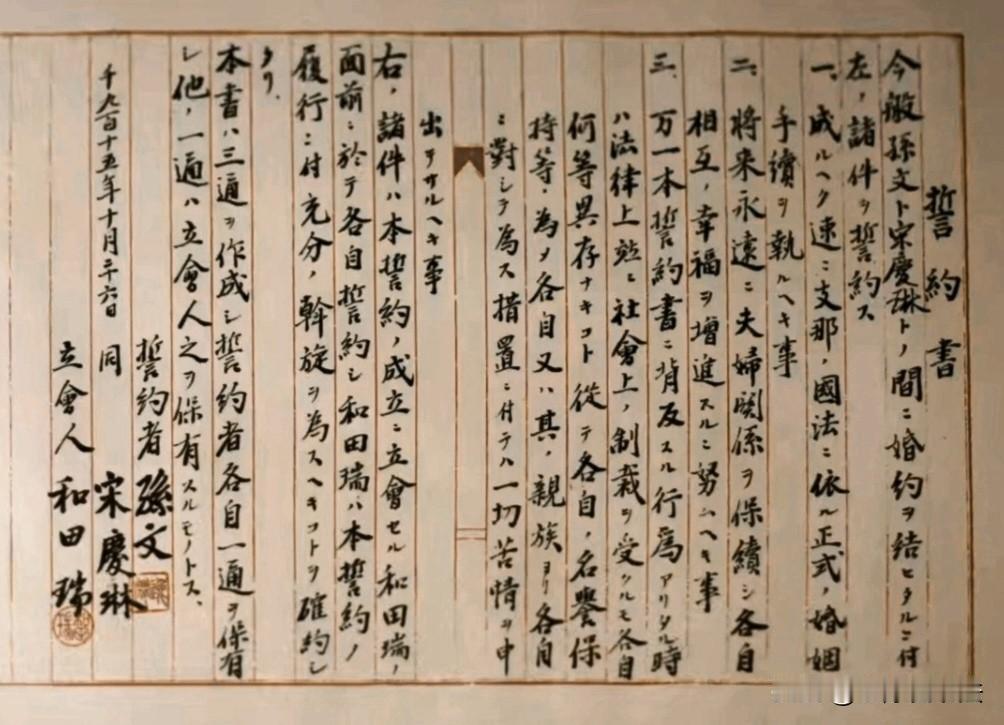 誓約書
今般孫文ト宋慶琳トノ間ニ婚約ヲ結ヒタルニ付
左ノ諸件ヲ誓約ス
一、成ルヘク速ニ支那ノ國法ニ依ル正式ノ婚姻
手續ヲ執ルヘキ事
二、将来永遠ニ夫婦関係ヲ保續シ各自
相互ノ幸福ヲ増進スルニ努ムヘキ事
三、万一本誓約書ニ背反スル行爲アリタル時
ハ法律上並ニ社會上ノ制裁ヲ受クルモ各自
何等異存ナキコト從テ各自ノ名譽保
持等ノ為メ各自又ハ其ノ親族ヨリ各自
ニ對シテ為ス措置ニ付テハ一切苦情ヲ申
出テサルヘキ事
右ノ諸件ハ本誓約ノ成立ニ立會セル和田瑞ノ
面前ニ於テ各自誓約シ和田瑞ハ本誓約ノ
履行ニ付充分ノ斡旋ヲ為スヘキコトヲ確約シ
タリ、
本書ハ三通ヲ作成シ誓約者各自一通ヲ保有
シ他ノ一通ハ立會人之ヲ保有スルモノトス、
誓約者 孫文
千九百十五年十月二十六日 同 宋慶琳
立會人 和田瑞